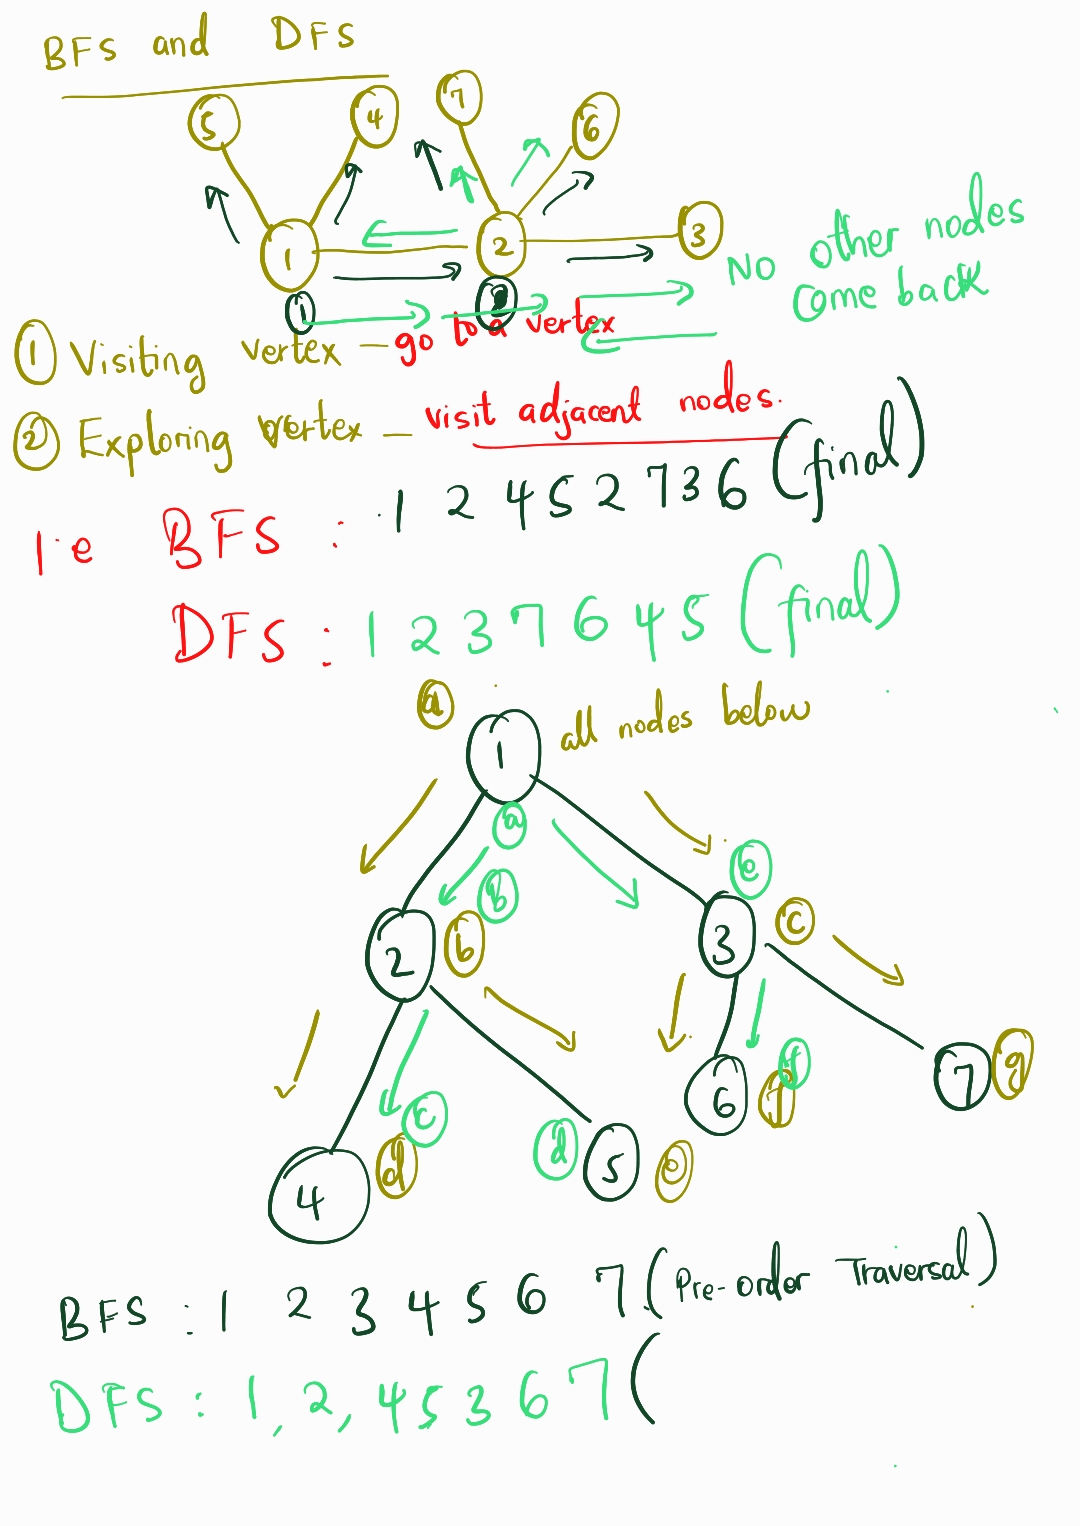 BFS and DFS
5 4 7 6
1 2 3
No other nodes
come back
1 2
① Visiting vertex — go to a vertex
② Exploring vertex — visit adjacent nodes.
i.e BFS : 1 2 4 5 2 7 3 6 (final)
DFS : 1 2 3 7 6 4 5 (final)
a
1 all nodes below
a
b e
2 b 3 c
c d 4
d 5 e
6 f f
7 g
BFS : 1 2 3 4 5 6 7 (Pre-order Traversal)
DFS : 1, 2, 4 5 3 6 7 (